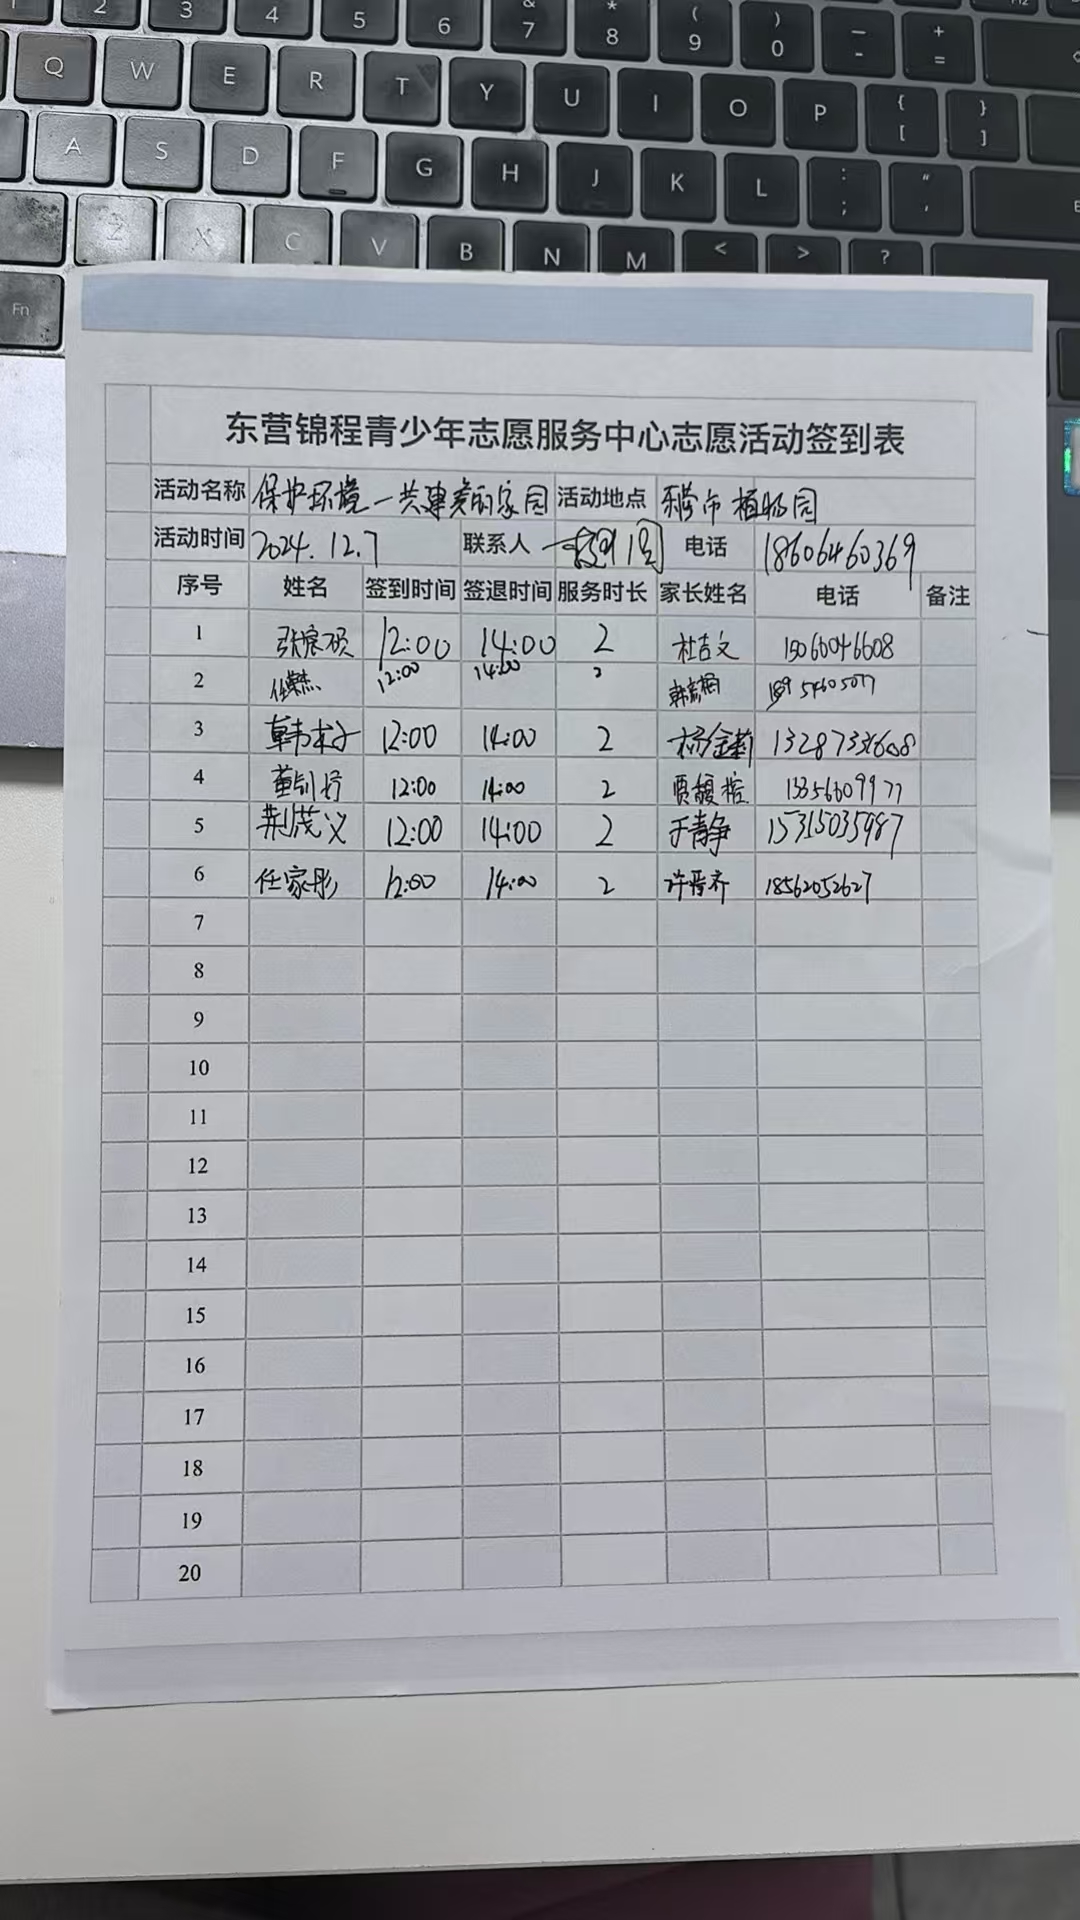 2 3 4 5 6 & 7 * 8 ( 9 ) 0 — - + =
Q W E R T Y U I O P { [ } ]
A S D F G H J K L : ; " '
Z X C V B N M < > ?
Fn
东营锦程青少年志愿服务中心志愿活动签到表
活动名称 保护环境一共建美丽家园 活动地点 东营市植物园
活动时间 2024.12.7 联系人 电话 18606460369
序号 姓名 签到时间 签退时间 服务时长 家长姓名 电话 备注
1 张宸硕 12:00 14:00 2 杜吉文 15066046608
2 12:00 14:00 2
3 12:00 14:00 2
4 董钊妤 12:00 14:00 2 13356609977
5 荆茂义 12:00 14:00 2 于青争 15315035987
6 任家彤 12:00 14:00 2 许晋齐 18562052627
7
8
9
10
11
12
13
14
15
16
17
18
19
20